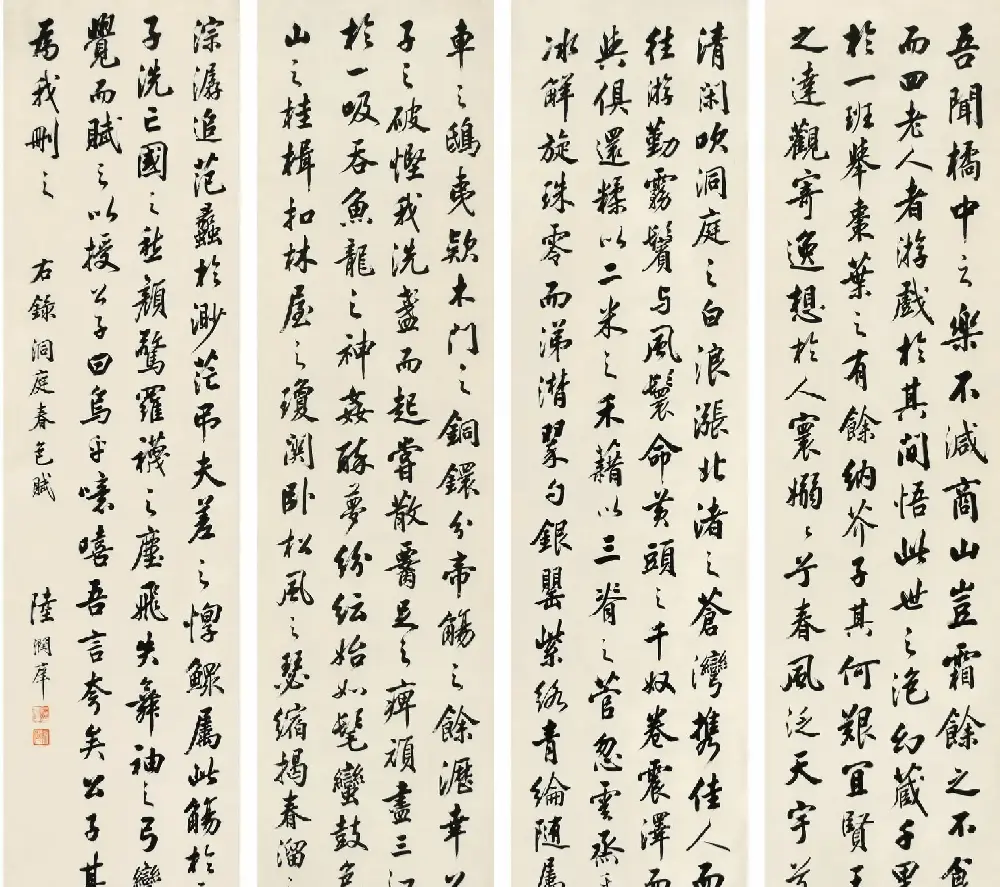 吾聞橘中之樂不減商山豈霜餘之不食
而四老人者游戲於其間悟此世之泡幻藏千里
於一班舉棗葉之有餘納芥子其何艱宜賢
之達觀寄逸想於人寰嫋〻兮春風泛天宇兮
清閑吹洞庭之白浪漲北渚之蒼灣攜佳人而
往游勤霧鬢与風鬟命黃頭之千奴卷震澤而
與俱還糅以二米之禾藉以三脊之菅忽雲烝
冰解旋珠零而涕潸翠勺銀罌紫絡青綸随屬
車之鴟夷款木門之銅鐶分帝觴之餘瀝幸公
子之破慳我洗盞而起嘗散腰足之痺頑盡三江
於一吸吞魚龍之神姦醉夢紛紜始如髦蠻鼓包
山之桂楫扣林屋之瓊関卧松風之瑟縮揭春溜
淙潺追范蠡於渺茫吊夫差之惸鰥属此觴於
子洗亡國之愁顏驚羅襪之塵飛失舞袖之弓彎
覺而賦之以授公子曰烏乎噫嘻吾言夸矣公子其
為我刪之
右錄洞庭春色賦
陸潤庠